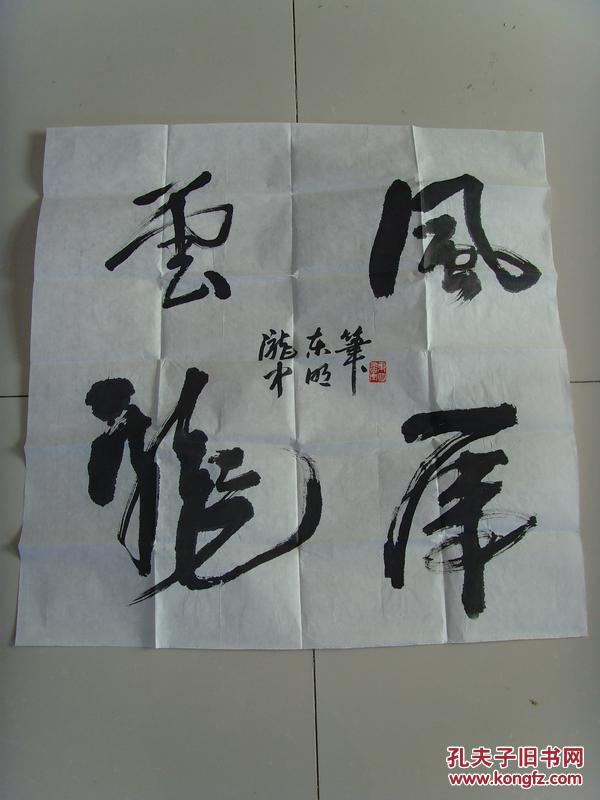 風虎
雲龍
隴中
东明
筆
孔夫子旧书网
www.kongfz.com